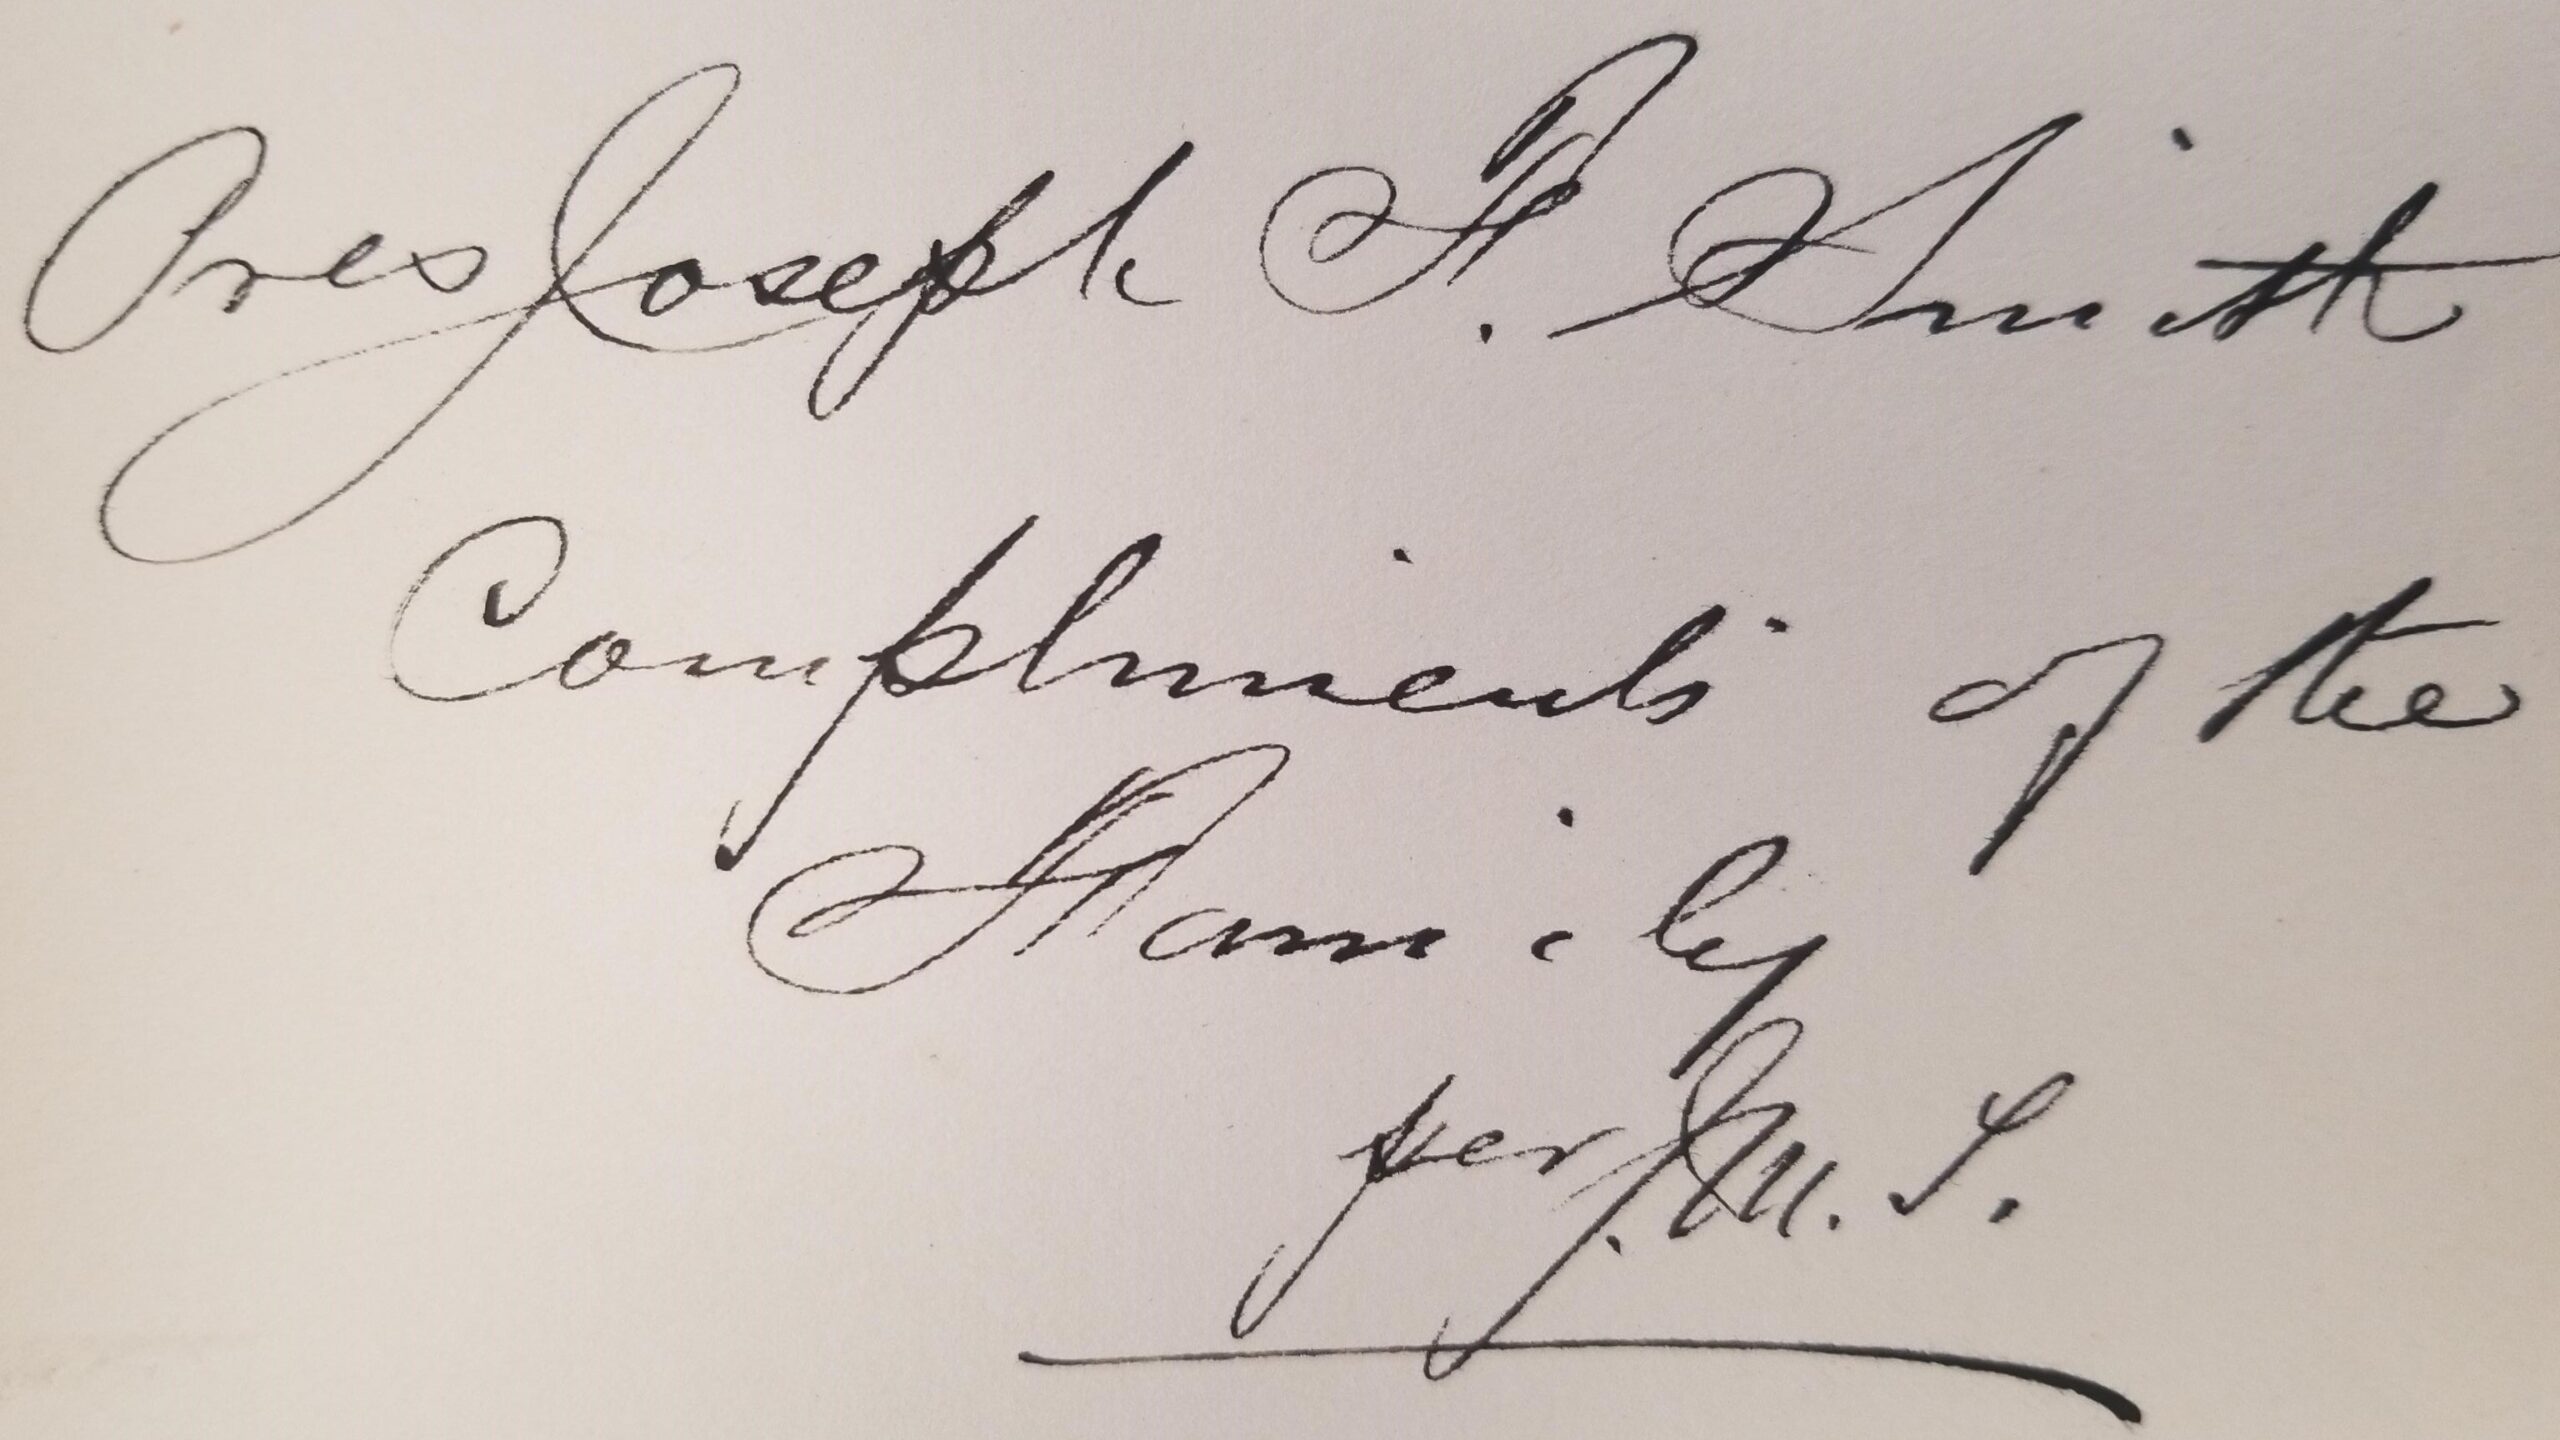 Pres Joseph F. Smith
Compliments of the
Family
per J. M. S.